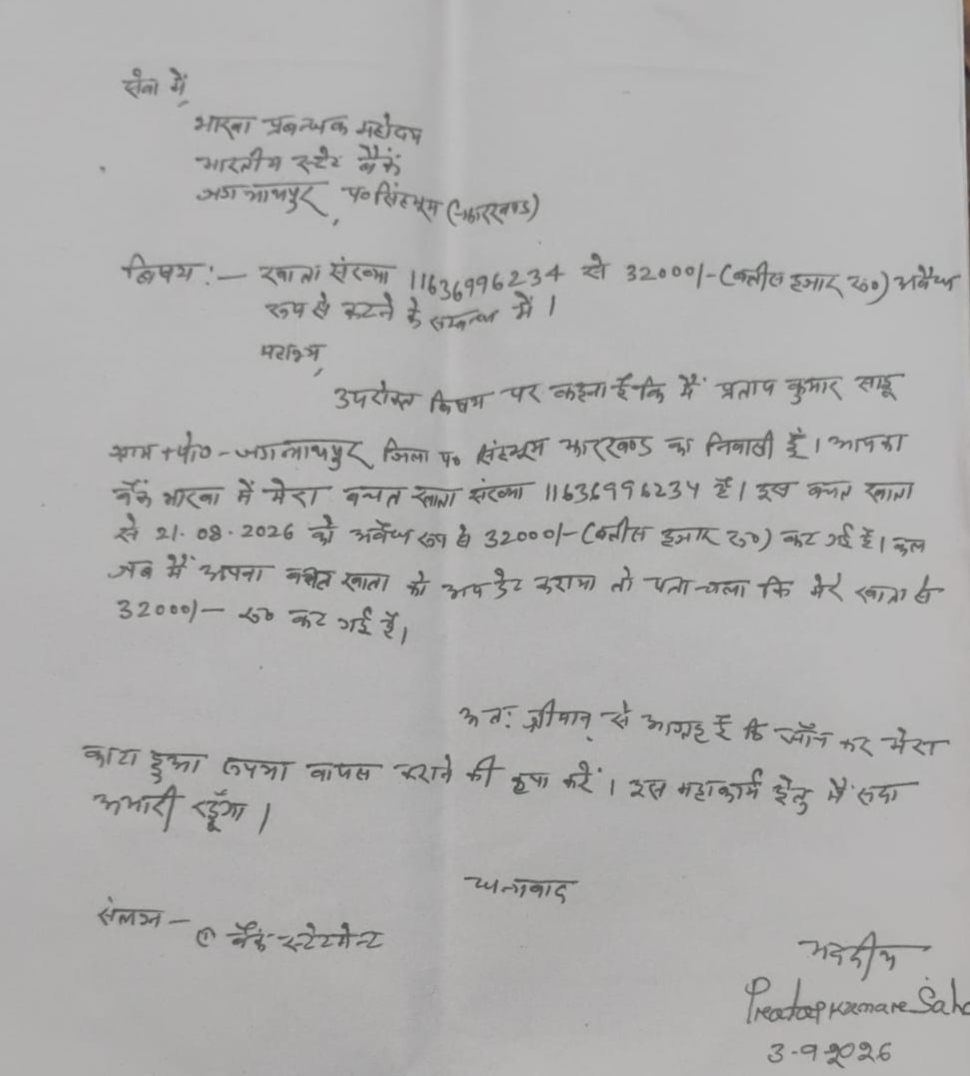 सेवा में,
शाखा प्रबन्धक महोदय
भारतीय स्टेट बैंक
जगन्नाथपुर, प० सिंहभूम (झारखण्ड)
विषय :- खाता संख्या 11636996234 से 32000/- (बत्तीस हजार रु०) अवैध
रूप से कटने के सम्बन्ध में।
महाशय,
उपरोक्त विषय पर कहना है कि मैं प्रताप कुमार साहू
ग्राम + पो० - जगन्नाथपुर जिला प० सिंहभूम झारखण्ड का निवासी हूं। आपका
बैंक शाखा में मेरा बचत खाता संख्या 11636996234 है। इस बचत खाता
से 21.08.2026 को अवैध रूप से 32000/- (बत्तीस हजार रु०) कट गई है। कल
जब मैं अपना बचत खाता को अपडेट कराया तो पता चला कि मेरे खाता से
32000/- रु० कट गई है।
अतः श्रीमान् से आग्रह है कि जाँच कर मेरा
काटा हुआ रुपया वापस कराने की कृपा करें। इस महाकार्य हेतु मैं सदा
अभारी रहूँगा।
धन्यवाद
संलग्न - ① बैंक स्टेटमेन्ट
भवदीय
Pratap Kumar Saho
3-9-2026